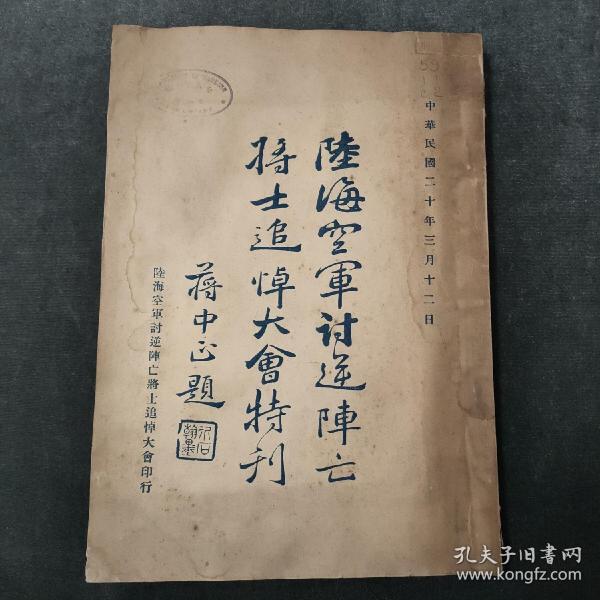 中華民國二十年三月十二日
陸海空軍討逆陣亡
將士追悼大會特刊
蔣中正題
介石翰墨
陸海空軍討逆陣亡將士追悼大會印行
孔夫子旧書网
www.kongfz.com